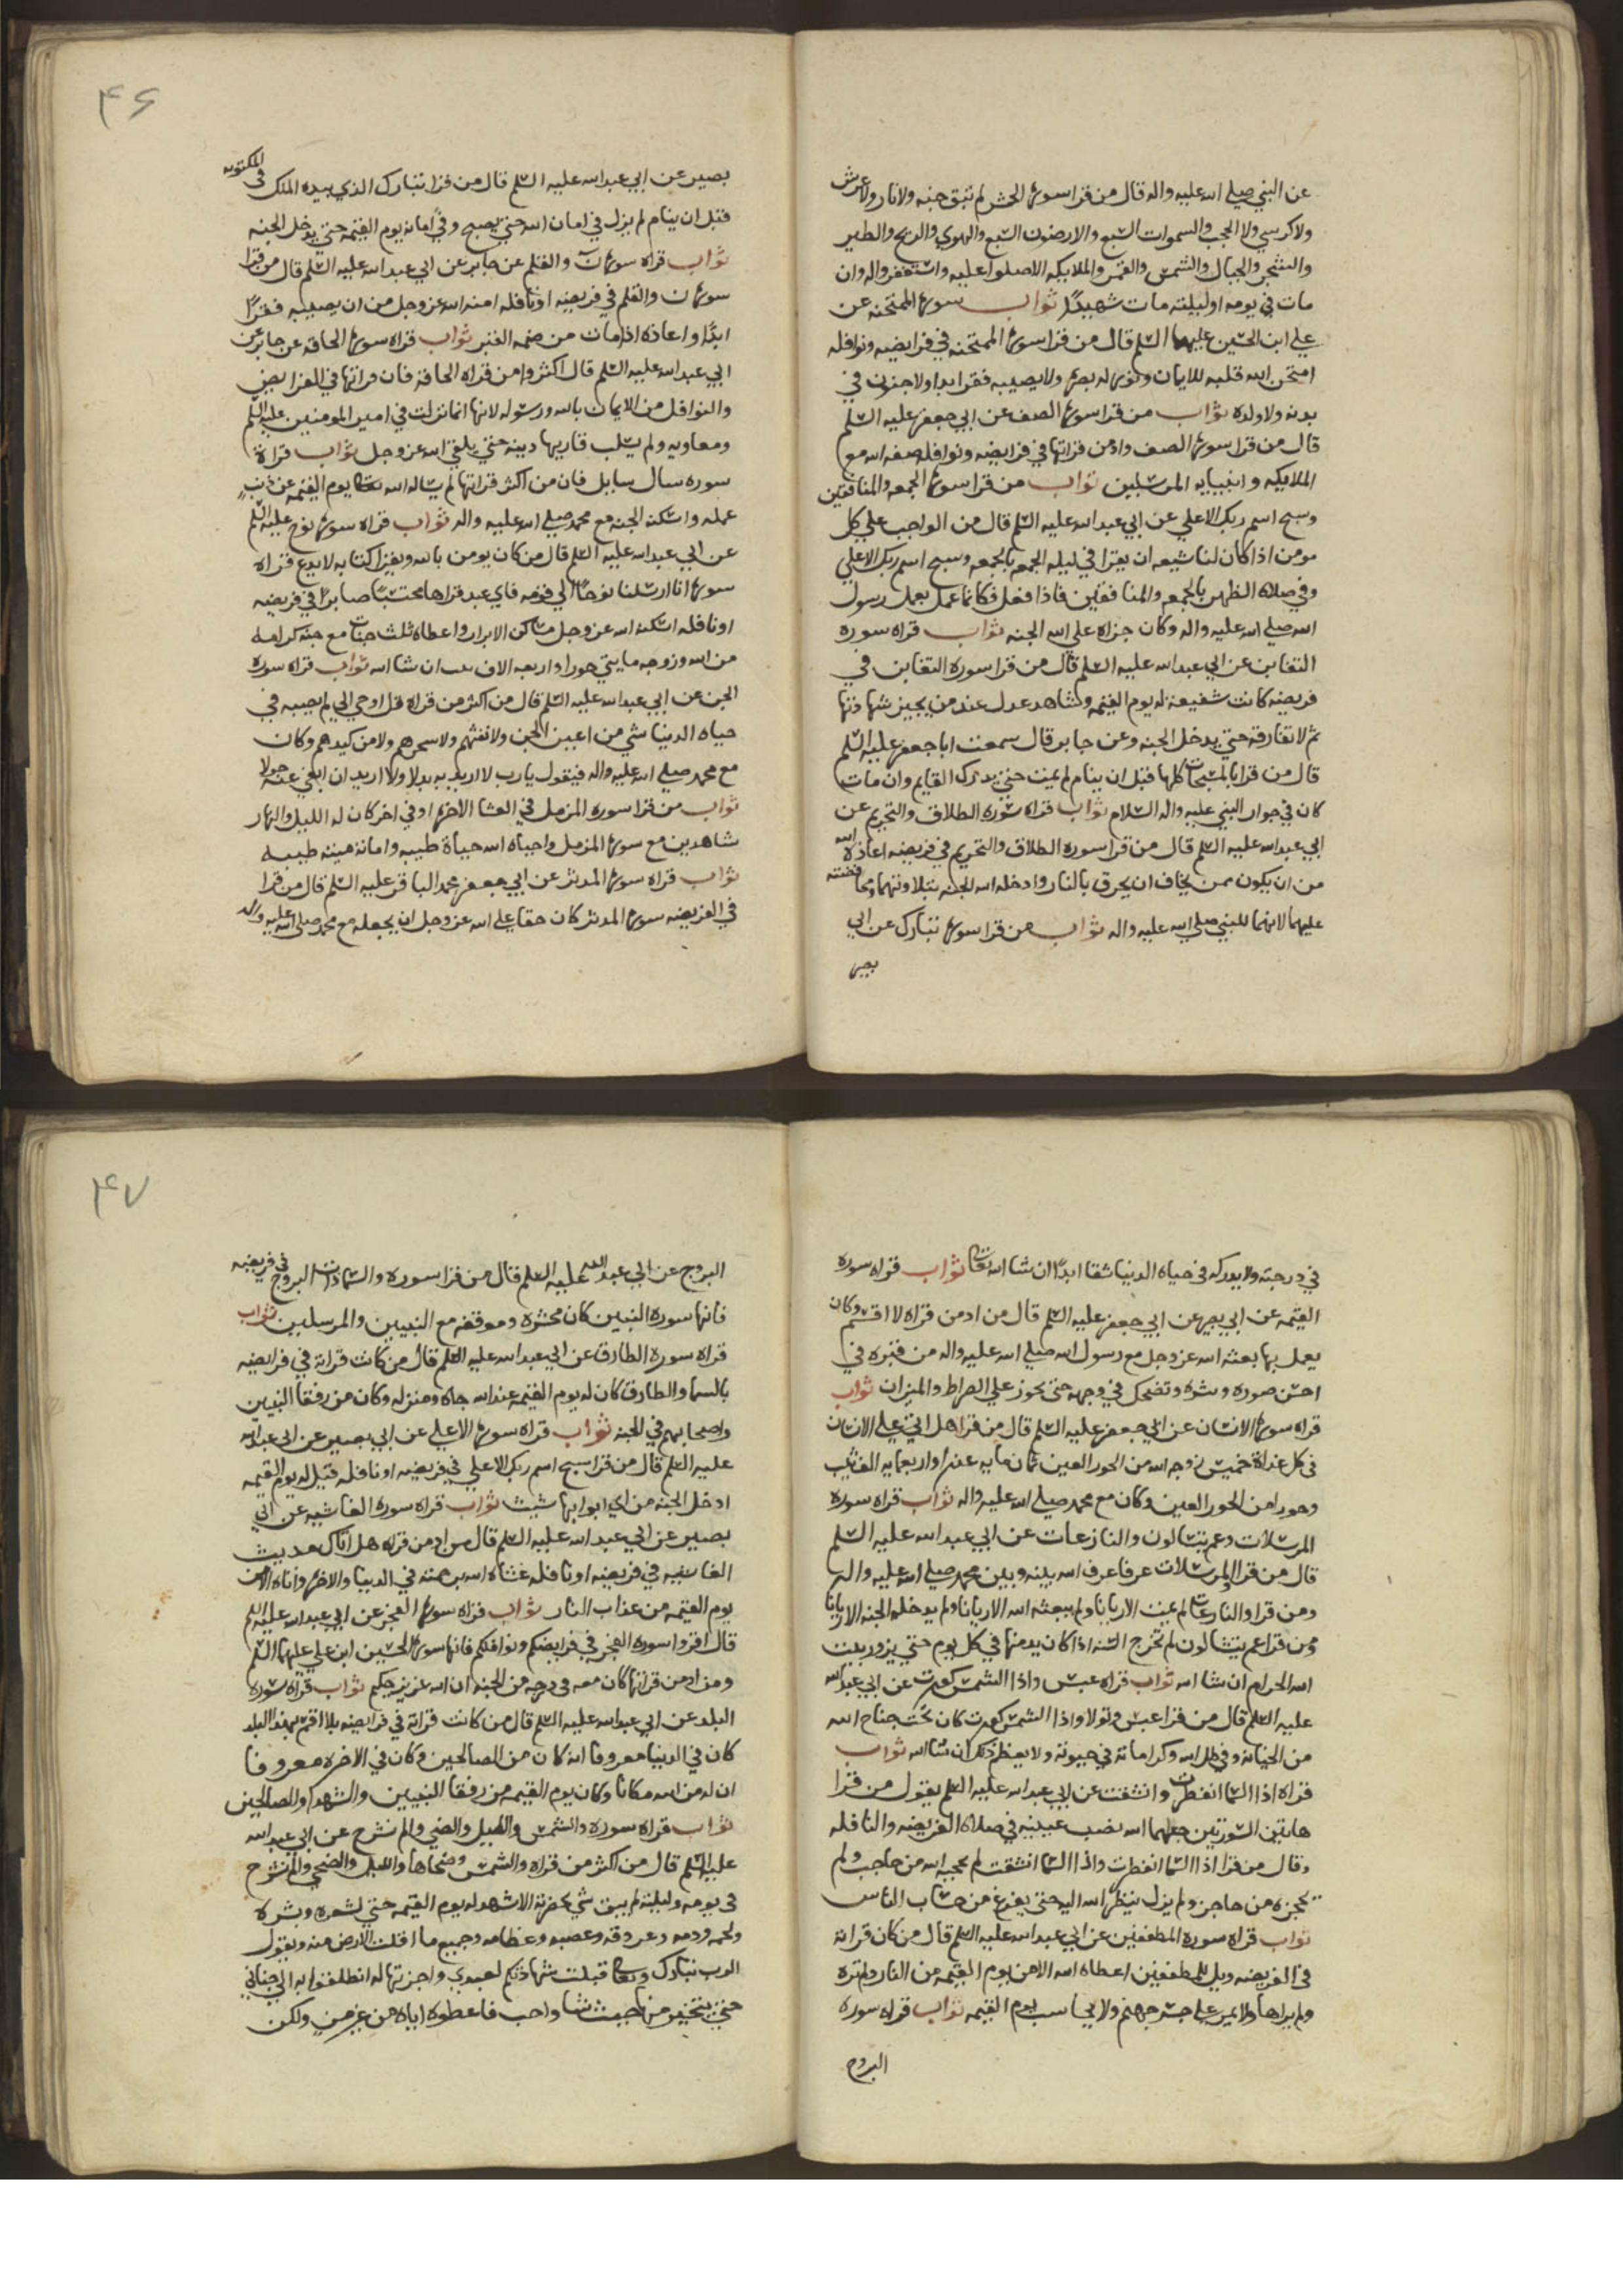 عن النبي صلي الله عليه واله قال من قرا سورة الحشر لم تبق جنه ولا نار ولا عرش
ولا كرسي ولا الحجب والسموات السبع والارضون السبع والهوي والريح والطير
والشجر والجبال والشمس والقمر والملايكه الا صلوا عليه واستغفروا له وان
مات في يومه او ليلته مات شهيدًا ثواب سورة الممتحنه عن
علي ابن الحسين عليهما السلم قال من قرا سورة الممتحنه في فرايضه ونوافله
امتحن الله قلبه للايمان ونور له بصره ولا يصيبه فقر ابدا ولا جنون في
بدنه ولا ولده ثواب من قرا سورة الصف عن ابي جعفر عليه السلم
قال من قرا سورة الصف وادمن قراتها في فرايضه ونوافله صفه الله مع
الملايكه وانبيايه المرسلين ثواب من قرا سورة الجمعه والمنافقين
وسبح اسم ربك الاعلي عن ابي عبد الله عليه السلم قال من الواجب علي كل
مومن اذا كان لنا شيعه ان يقرا في ليله الجمعه بالجمعه وسبح اسم ربك الاعلي
وفي صلاة الظهر بالجمعه والمنافقين فاذا فعل فكانما عمل بعمل رسول
الله صلي الله عليه واله وكان جزاه علي الله الجنه ثواب قراه سوره
التغابن عن ابي عبد الله عليه السلم قال من قرا سورة التغابن في
فريضه كانت شفيعة له يوم القيمه وشاهد عدل عند من يجيز شهادتها
ثم لا تفارقه حتي يدخل الجنه وعن جابر قال سمعت ابا جعفر عليه السلم
قال من قرا بالمسبحات كلها قبل ان ينام لم يمت حتي يدرك القايم وان مات
كان في جوار النبي عليه واله السلام ثواب قراه سوره الطلاق والتحريم عن
ابي عبد الله عليه السلم قال من قرا سورة الطلاق والتحريم في فريضه اعاذه الله
من ان يكون ممن يخاف ان يحرق بالنار وادخله الله الجنه بتلاوتهما ومحافظته
عليهما لانهما للنبي صلي الله عليه واله ثواب من قرا سورة تبارك عن ابي
بصير
۴۶
بصير عن ابي عبد الله عليه السلم قال من قرا تبارك الذي بيده الملك في المكتوبه
قبل ان ينام لم يزل في امان الله حتي يصبح وفي امانه يوم القيمه حتي يدخل الجنه
ثواب قراه سورة ن والقلم عن جابر عن ابي عبد الله عليه السلم قال من قرا
سورة ن والقلم في فريضه او نافله امنه الله عز وجل من ان يصيبه فقرًا
ابدًا واعاذه اذا مات من ضمه القبر ثواب قراه سورة الحاقه عن جابر عن
ابي عبد الله عليه السلم قال اكثروا من قراه الحاقه فان قراتها في الفرايض
والنوافل من الايمان بالله ورسوله لانها انما نزلت في امير المومنين عليه السلم
ومعاويه ولم يسلب قاريها دينه حتي يلقي الله عز وجل ثواب قراة
سوره سال سايل فان من اكثر قراتها لم يساله الله تعالى يوم القيمه عن ذنب
عمله واسكنه الجنه مع محمد صلي الله عليه واله ثواب قراه سورة نوح عليه السلم
عن ابي عبد الله عليه السلم قال من كان يومن بالله ويقرا كتابه لا يدع قراه
سورة انا ارسلنا نوحًا الي قومه فاي عبد قراها محتسبًا صابرًا في فريضه
او نافله اسكنه الله عز وجل مساكن الابرار واعطاه ثلث جنات مع جنته كرامه
من الله وزوجه مايتي حورا واربعه الاف ان شا الله ثواب قراه سوره
الجن عن ابي عبد الله عليه السلم قال من اكثر من قراه قل اوحي الي لم يصبه في
حياه الدنيا شي من اعين الجن ولا نفثهم ولا سحرهم ولا من كيدهم وكان
مع محمد صلي الله عليه واله فيقول يارب لا اريد به بدلا ولا اريد ان ابغي عنه حولا
ثواب من قرا سوره المزمل في العشا الاخره او في اخر كان له الليل والنهار
شاهدين مع سورة المزمل واحياه الله حياة طيبه واماته ميته طيبه
ثواب قراه سورة المدثر عن ابي جعفر محمد الباقر عليه السلم قال من قرا
في الفريضه سورة المدثر كان حقا علي الله عز وجل ان يجعله مع محمد صلى الله عليه واله
في درجته ولا يدركه في حياه الدنيا شقا ابدًا ان شا الله تعالى ثواب قراه سوره
القيمه عن ابي بصير عن ابي جعفر عليه السلم قال من ادمن قراه لا اقسم وكان
يعمل بها بعثه الله عز وجل مع رسول الله صلي الله عليه واله من قبره في
احسن صوره وبشره وتضحك في وجهه حتى يجوز علي الصراط والميزان ثواب
قراه سورة الانسان عن ابي جعفر عليه السلم قال من قرا هل اتي علي الانسان
في كل غداة خميس زوجه الله من الحور العين ثمان مايه عذرا واربعه الف ثيب
وحورا من الحور العين وكان مع محمد صلي الله عليه واله ثواب قراه سوره
المرسلات وعم يتسالون والنازعات عن ابي عبد الله عليه السلم
قال من قرا المرسلات عرفا عرف الله بينه وبين محمد صلي الله عليه واله
ومن قرا والنازعات لم يمت الا ريانا ولم يبعثه الله الا ريانا ولم يدخله الجنه الا ريانا
ومن قرا عم يتسالون لم تخرج السنه اذا كان يدمنها في كل يوم حتي يزور بيت
الله الحرام ان شا الله ثواب قراه عبس واذا الشمس كورت عن ابي عبد الله
عليه السلم قال من قرا عبس وتولا واذا الشمس كورت كان تحت جناح الله
من الخيانه وفي ظل الله وكراماته في حيوته ولا يعظم ذلك ان شا الله ثواب
قراه اذا السما انفطرت وانشقت عن ابي عبد الله عليه السلم يقول من قرا
هاتين السورتين جعلهما الله نصب عينيه في صلاة الفريضه والنافله
وقال من قرا اذا السما انفطرت واذا السما انشقت لم يحجبه الله من حاجب ولم
يحجزه من حاجز ولم يزل ينظر الله اليه حتي يفرغ من حساب الناس
ثواب قراه سورة المطففين عن ابي عبد الله عليه السلم قال من كان قراته
في الفريضه ويل للمطففين اعطاه الله الامن يوم القيمه من النار ولم تره
ولم يراها ولا يمر علي جسر جهنم ولا يحاسب يوم القيمه ثواب قراه سوره
البروج
۴۷
البروج عن ابي عبد الله عليه السلم قال من قرا سوره والسما ذات البروج في فريضه
فانها سورة النبيين كان محشره وموقفه مع النبيين والمرسلين ثواب
قراه سوره الطارق عن ابي عبد الله عليه السلم قال من كانت قراته في فرايضه
بالسما والطارق كان له يوم القيمه عند الله جاه ومنزله وكان من رفقا النبيين
واصحابهم في الجنه ثواب قراه سورة الاعلي عن ابي بصير عن ابي عبد الله
عليه السلم قال من قرا سبح اسم ربك الاعلي في فريضه او نافله قيل له يوم القيمه
ادخل الجنه من اي ابوابها شيت ثواب قراه سورة الغاشيه عن ابي
بصير عن ابي عبد الله عليه السلم قال من ادمن قراه هل اتاك حديث
الغاشيه في فريضه او نافله غشاه الله برحمته في الدنيا والاخره واتاه الامن
يوم القيمه من عذاب النار ثواب قراه سورة الفجر عن ابي عبد الله عليه السلم
قال اقروا سوره الفجر في فرايضكم ونوافلكم فانها سورة الحسين ابن علي عليهما السلم
ومن ادمن قراتها كان معه في درجه من الجنه ان الله عزيز حكيم ثواب قراه سوره
البلد عن ابي عبد الله عليه السلم قال من كانت قراته في فرايضه بلا اقسم بهذا البلد
كان في الدنيا معروفا انه كان من الصالحين وكان في الاخره معروفا
ان له من الله مكانا وكان يوم القيمه من رفقا النبيين والشهدا والصالحين
ثواب قراه سوره والشمس والليل والضحي والم نشرح عن ابي عبد الله
عليه السلم قال من اكثر من قراه والشمس وضحاها والليل والضحي والم نشرح
في يومه وليلته لم يبق شي بحضرته الا شهد له يوم القيمه حتي لشعره وبشره
ولحمه ودمه وعروقه وعصبه وعظامه وجميع ما اقلت الارض منه ويقول
الرب تبارك وتعالى قبلت شهادتكم لعبدي واجزتها له انطلقوا به الي جناني
حتي يتخير منها حيث شا واحب فاعطوه اياه من غير من ولكن